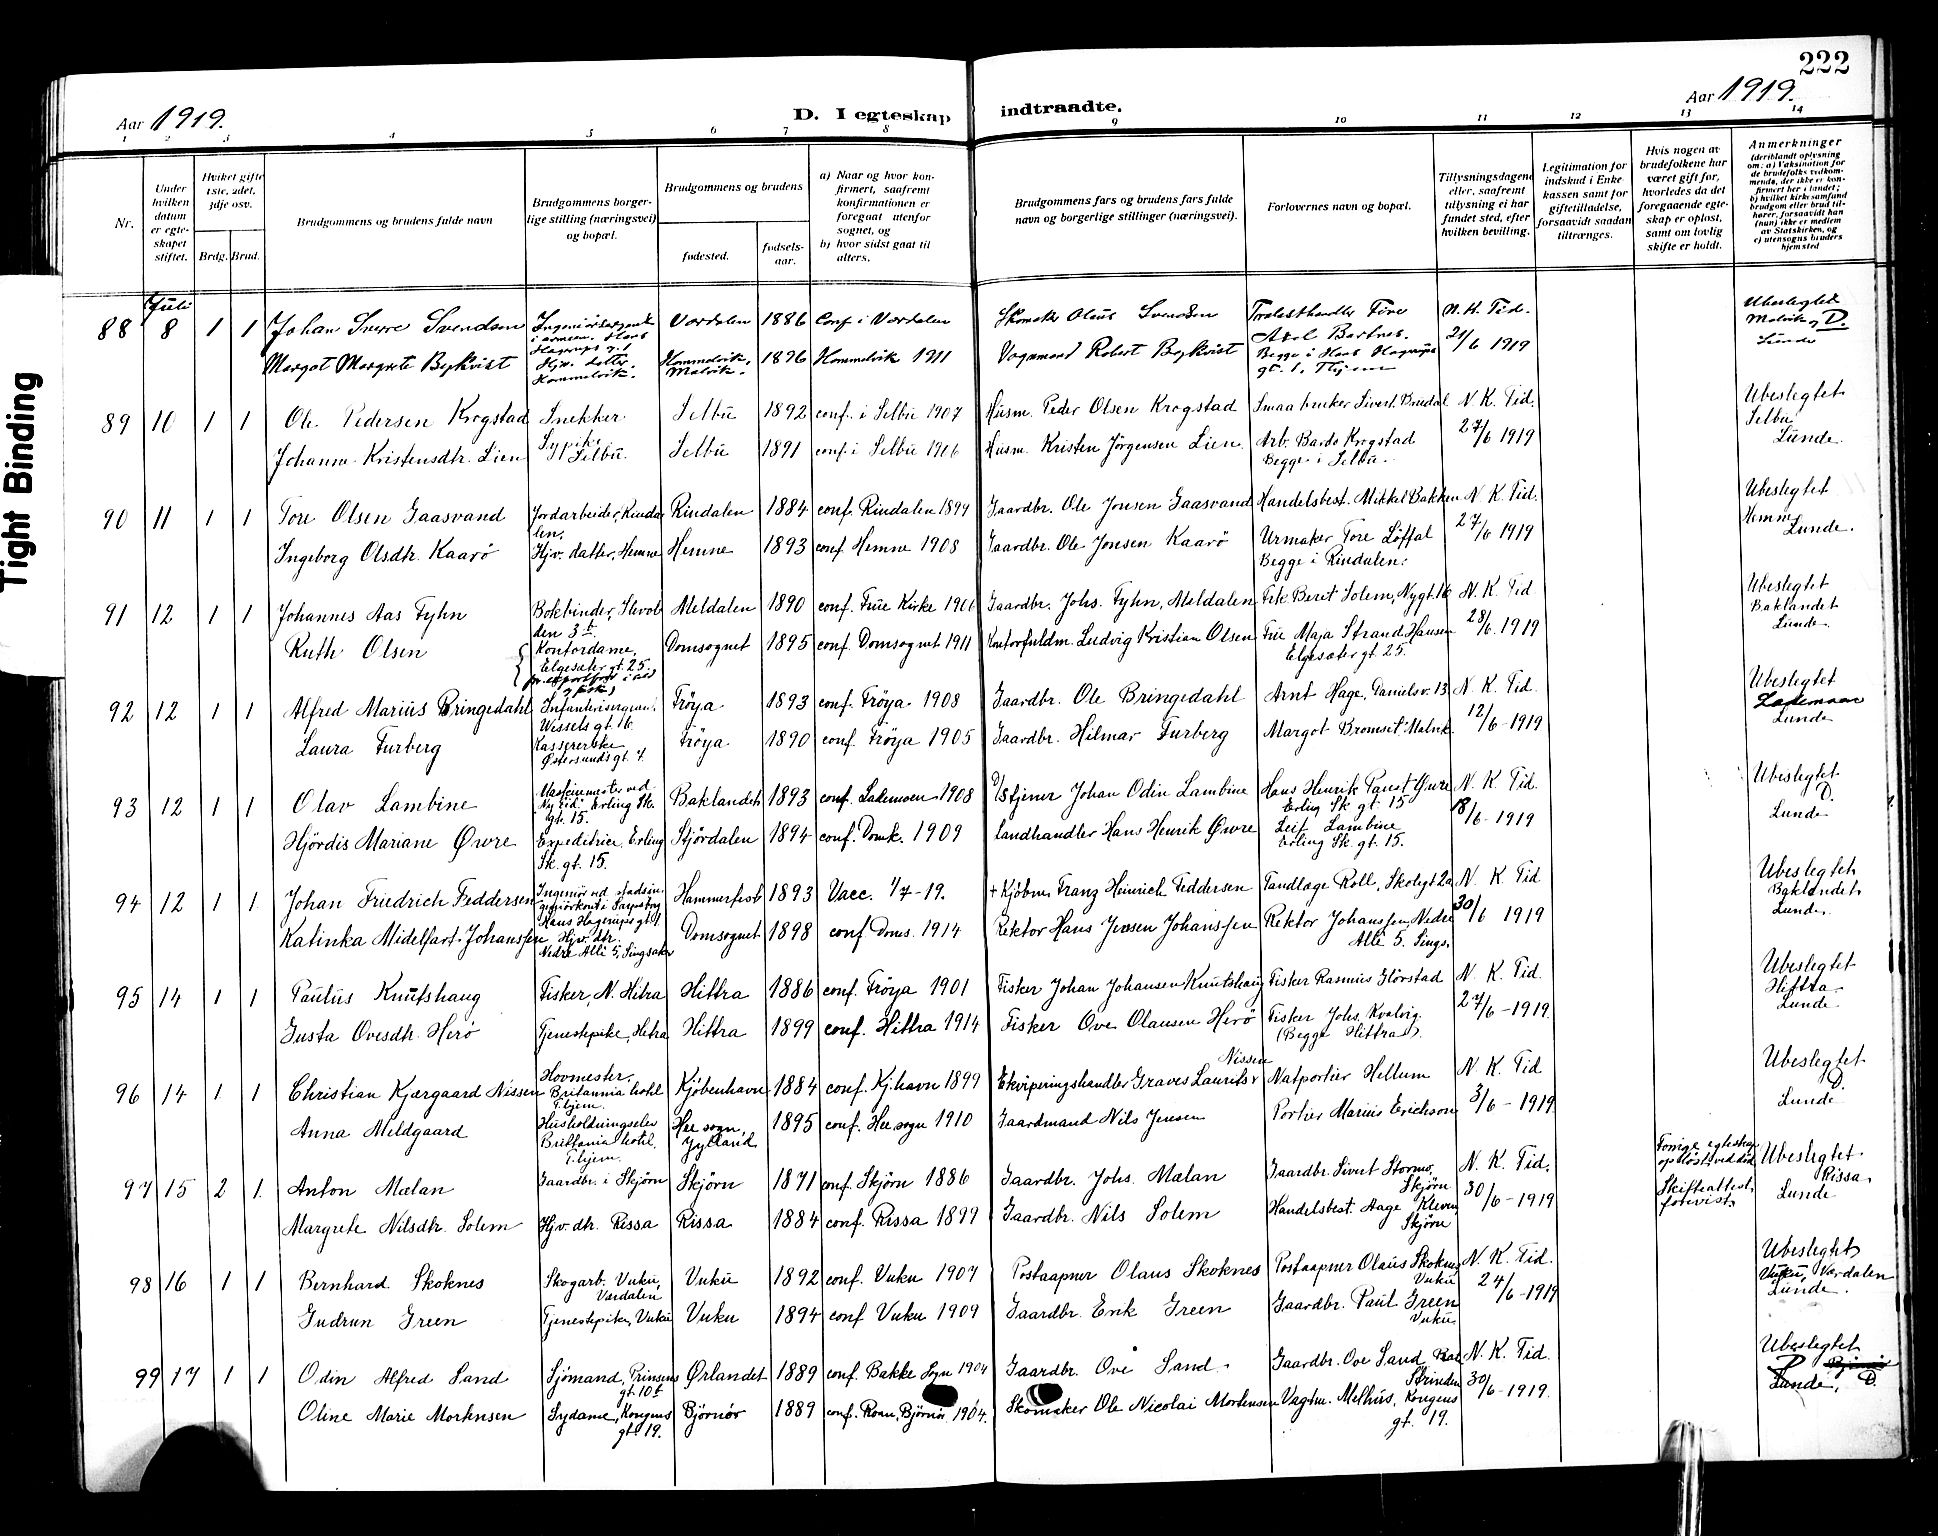 222
Aar 1919.
D. I egteskap indtraadte.
Aar 1919.
1 2 3 4 5 6 7 8 9 10 11 12 13 14
Nr.
Under hvilken datum er egteskapet stiftet.
Hvilket gifte 1ste, 2det, 3dje osv.
Brdg. Brud.
Brudgommens og brudens fulde navn
Brudgommens borgerlige stilling (næringsvei) og bopæl.
Brudgommens og brudens
fødested.
fødselsaar.
a) Naar og hvor konfirmert, saafremt konfirmationen er foregaat utenfor sognet, og
b) hvor sidst gaat til alters.
Brudgommens fars og brudens fars fulde navn og borgerlige stillinger (næringsvei).
Forlovernes navn og bopæl.
Tillysningsdagene eller, saafremt tillysning ei har fundet sted, efter hvilken bevilling.
Legitimation for indskud i Enkekassen samt for giftetilladelse, forsaavidt saadan tiltrænges.
Hvis nogen av brudefolkene har været gift før, hvorledes da det foregaaende egteskap er opløst, samt om lovlig skifte er holdt.
Anmerkninger (deriblandt oplysning om: a) Vaksination for de brudefolks vedkommende, der ikke er konfirmert her i landet; b) hvilket kirkesamfund brudgom eller brud tilhører, forsaavidt han (hun) ikke er medlem av Statskirken, og c) utensogns bruders hjemsted
Juli
88 8 1 1 Johan Sverre Svendsen Ingeniørsergeant i armeen. Hans Hagerups g. 1 Værdalen 1886 Conf i Værdalen Skomaker Olaus Svendsen Axel Bartnes. Begge i Hans Hagerups gt. 1, Thjem N. K. Tid. 21/6 1919 Ubeslegtet Malvik, D. Lunde
Margot Margrete Bykvist Hjv. datter, Hommelvik. Hommelvik, Malvik. 1896 Hommelvik 1911 Vognmand Robert Bykvist
89 10 1 1 Ole Pedersen Krogstad Snekker. Selbu 1892 conf. i Selbu 1907 Husm. Peder Olsen Krogstad Smaabruker Sivert Bredal N. K. Tid. 27/6 1919 Ubeslegtet Selbu Lunde.
Johanne Kristensdtr. Lien Sypike Selbu. Selbu 1891 conf i Selbu 1906 Husm. Kristen Jörgensen Lien Arb. Bardo Krogstad Begge i Selbu.
90 11 1 1 Tore Olsen Gaasvand Jordarbeider, Rindalen. Rindalen 1884 conf. Rindalen 1899 Gaardbr. Ole Jonsen Gaasvand Handelsbest. Mikkel Bakken N. K. Tid. 27/6 1919 Ubeslegtet Hemne Lunde.
Ingeborg Olsdtr. Kaarö Hjv. datter, Hemne Hemne 1893 conf Hemne 1908 Gaardbr. Ole Jonsen Kaarö Urmaker Tore Löffal Begge i Rindalen.
91 12 1 1 Johannes Aas Fyhn Bokbinder, Ilevolden 3 b. Meldalen 1890 conf. Frue Kirke 1906 Gaardbr. Johs. Fyhn, Meldalen Frk. Berit Solem, Nygt. 16 N. K. Tid 28/6. 1919 Ubeslegtet Baklandet Lunde
Ruth Olsen Kontordame, Elgesæter gt. 25. Domsognet 1895 conf. Domsognet 1911 Kontorfuldm. Ludvig Kristian Olsen Frue Maja Strand Hansen Elgesæter gt. 25.
92 12 1 1 Alfred Marius Bringedahl Infanterisergeant. Wessels gt. 16. Fröya 1893 conf. Fröya. 1908 Gaardbr. Ole Bringedahl Arnt Hage, Danielsv. 13 N. K. Tid. 12/6 - 1919 Ubeslegtet Lademoen Lunde
Laura Furberg Kassererske Østersundsgt. 7. Fröya. 1890 conf. Fröya 1905 Gaardbr. Hilmar Furberg Margot Bromset Malvik.
93 12 1 1 Olav Lambine Maskinmester ved Ny tid. Erling Sk. gt. 15. Baklandet 1893 conf. Lademoen 1908 Johan Odin Lambine Hans Henrik Faust Øwre Erling Sk gt. 15 N. K. Tid. 18/6 - 1919 Ubeslegtet D. Lunde
Hjördis Mariane Øwre Expeditrice, Erling Sk. gt. 15. Stjördalen 1894 conf. Domk. 1909 Landhandler Hans Henrik Øwre Leif Lambine Erling Sk. gt. 15.
94 12 1 1 Johan Friedrich Feddersen Hans Hagerups gt. 1 Hammerfest 1893 Vacc. 1/7-19. + Kjöbm. Franz Heinrich Feddersen Tandlæge Roll, Skolegt 2a N. K. Tid 30/6 1919 Ubeslegtet Baklandet, Lunde.
Katinka Midelfart Johanssen Hjv. dtr. Nedre Alle 5, Singsaker Domsognet 1898 conf Doms. 1914 Rektor Hans Jensen Johanssen Rektor Johanssen, Nedre Alle 5. Sings.
95 14 1 1 Paulus Knutshaug Fisker, N. Hitra Hittra 1886 conf. Fröya 1901 Fisker Johan Johansen Knutshaug Fisker Rasmus Glörstad N. K. Tid. 27/6 - 1919 Ubeslegtet Hittra Lunde
Gusta Ovesdtr. Herö Tjenestepike, Hitra Hittra 1899 conf. Hittra 1914 Fisker Ove Olausen Herö Fisker Johs. Kvalvig. (Begge Hittra).
96 14 1 1 Christian Kjærgaard Nissen Hovmester, Britannia hotel T.hjem. Kjöbenhavn 1884 conf. Kj.havn 1899 Ekviperingshandler Graves Laurits Nissen Natportier Hellum N. K. Tid 3/6 - 1919 Ubeslegtet D. Lunde
Anna Meldgaard Husholdningselev Brittania hotel. T.hjem. Hee sogn, Jylland 1895 conf. Hee sogn 1910 Gaardmand Nils Jensen Portier Marius Erichson
97 15 2 1. Anton Mælan Gaardbr. i Skjörn Skjörn 1871 conf. Skjörn 1886 Gaardbr. Johs. Mælan Gaardbr. Sivert Stormo, Skjörn N. K. Tid. 30/6 - 1919 Forrige egteskap oplöst ved död. Skifteattest forevist. Ubeslegtet Rissa, Lunde
Margrete Nilsdtr. Solem Hjv. dtr. Rissa Rissa 1884 conf. Rissa 1899 Gaardbr. Nils Solem Handelsbest. Aage Kleven Skjörn
98 16 1 1 Bernhard Skoknes Skogarb. Vuku, Værdalen Vuku 1892 conf. Vuku 1907 Postaapner Olaus Skoknes Postaapner Olaus Skoknes Vuku N. K. Tid. 24/6 - 1919 Ubeslegtet Vuku, Værdalen Lunde.
Gudrun Green Tjenestepike, Vuku Vuku 1894 conf Vuku 1909 Gaardbr. Erik Green Gaardbr. Paul Green Vuku.
99 17 1 1 Odin Alfred Sand Sjömand, Prinsens gt. 10 b Ørlandet 1889 conf. Bakke Sogn 1904 Gaardbr. Ove Sand. Gaardbr. Ove Sand Strinden N. K. Tid. 30/6 - 1919. Ubeslegtet Lunde, D.
Oline Marie Mortensen Sydame, Kongens gt. 19. Björnör 1889 conf. Roan, Björnör 1904. Skomaker Ole Nicolai Mortensen Vagtm. Melhus, Kongens gt. 19.
Tight Binding